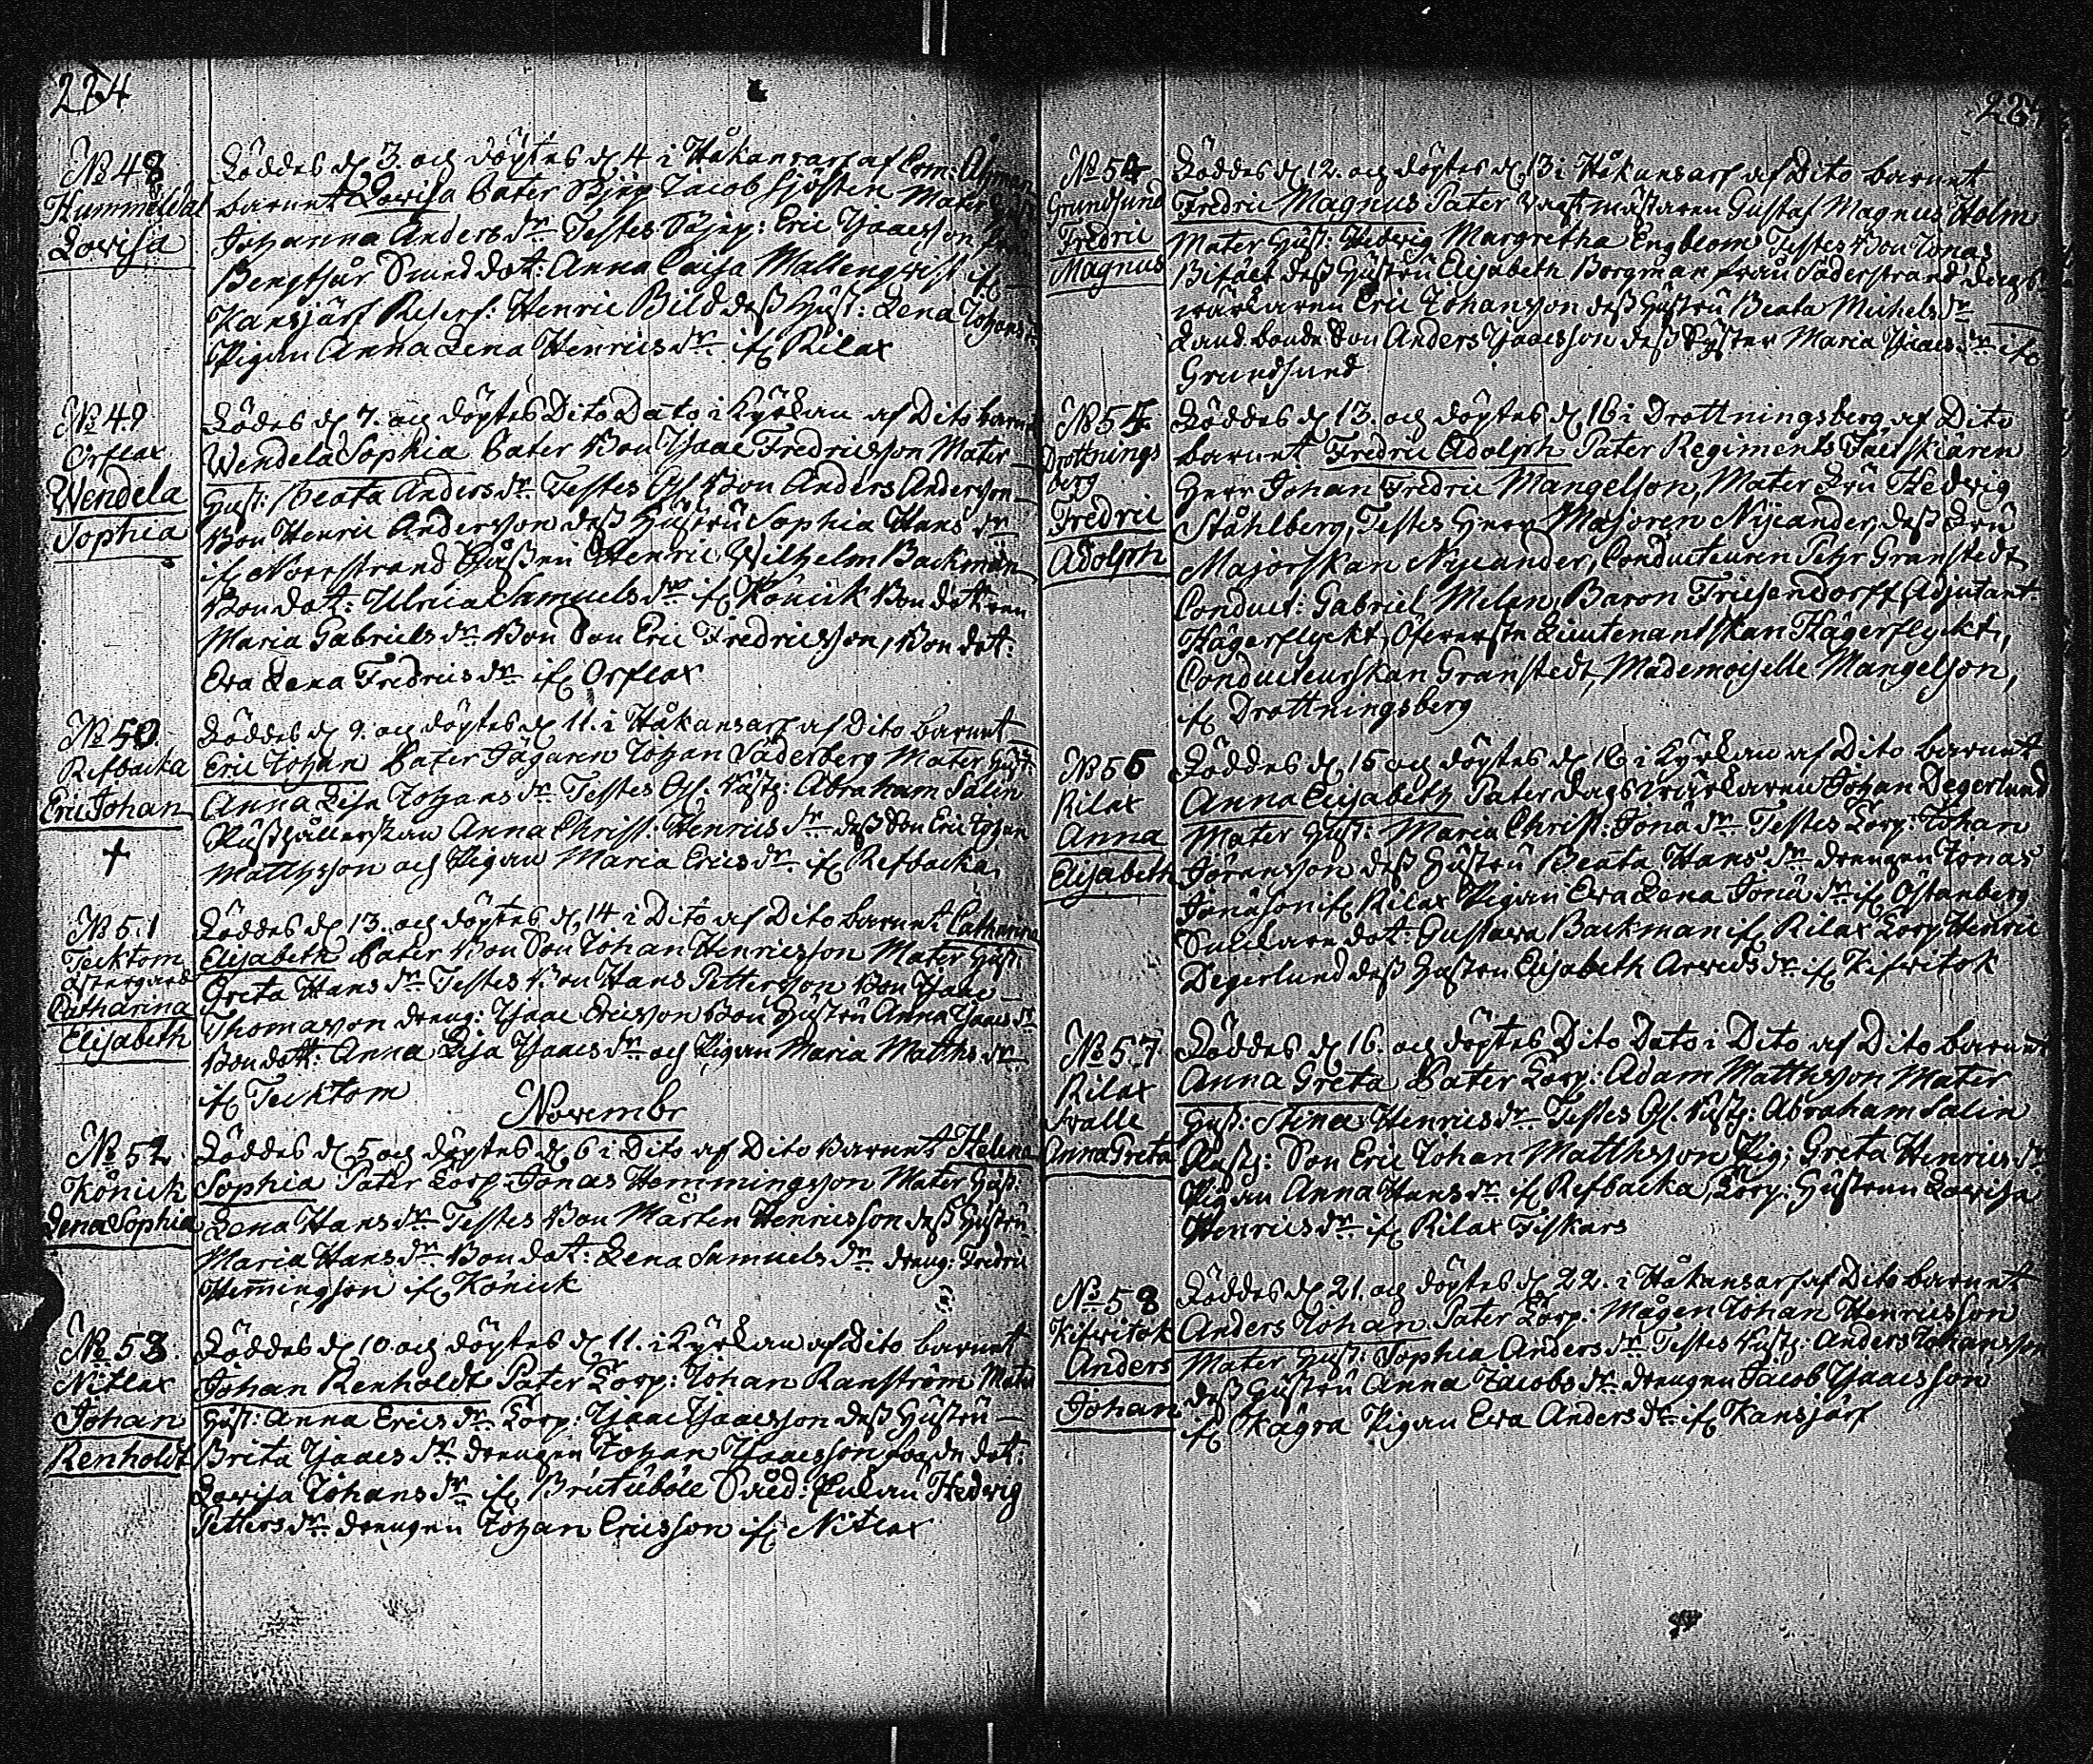 224
№ 48
Hummeldal
Lovisa
Föddes d. 3. och döptes d. 4 i Håkansarf af Com: Ahman
barnet Lovisa Pater Skjep Jacob Sjösten Mater Hust:
Johanna Anders dr Testes Skjep: Eric Isaacsson från
Bengtsår Smed dot: Anna Caisa Mallengvist if.
Kansjärf Reserf: Henric Bild dess Hust: Lena Johans dr
Pigan Anna Lena Henrics dr if. Rilax
№ 49
Orslax
Wendela
Sophia
Födes d. 7. och döptes Dito Dato i Kyrkan af Dito barnet
Wendela Sophia Pater Bon Isaac Fredricsson Mater
Hust: Beata Anders dr Testes Gl. Bon Anders Andersson
Bon Henric Andersson dess Hustru Sophia Hans dr
if. Norrstrand Henric Wilhelm Backman
Bondot: Ulrica Samuels dr if. Könick Bondottren
Maria Gabriels dr Bon Son Eric Fredricsson, Bon dot:
Eva Lena Fredrics dr if. Orslax
№ 50
Refbacka
Eric Johan
†
Föddes d. 9. och döptes d. 11. i Håkansarf af Dito barnet
Eric Johan Pater Jägaren Johan Söderberg Mater Hust:
Anna Lisa Johans dr Testes Gl. Rustg: Abraham Salin
Rusthållerskan Anna Christ: Henrics dr dess Son Eric Johan
Matthsson och Pigan Maria Erics dr if. Refbacka
№ 51
Tecktom
östergård
Catharina
Elisabeth
Föddes d. 13. och döptes d. 14 i Dito af Dito barnet Catharina
Elisabeth Pater Bon Son Johan Henricsson Mater Hust:
Greta Hans dr Testes Bon Hans Pettersson Bon Isaac
Thomasson dreng: Isaac Ericsson Bon Hustru Anna Isaacs dr
Bondott: Anna Lisa Isaacs dr och Pigan Maria Matths dr
if. Tecktom
Novembr
№ 52
Könick
Lena Sophia
Föddes d. 5 och döptes d. 6 i Dito af Dito Barnet Helena
Sophia Pater Torp. Jonas Hemmingsson Mater Hust:
Lena Hans dr Testes Bon Mårten Henricsson dess Hustru
Maria Hans dr Bon dot: Lena Samuels dr dreng: Fredric
Hemingson if. Könick
№ 53
Nitlax
Johan
Renholdt
Föddes d. 10 och döptes d. 11. i Kyrkan af Dito barnet
Johan Renholdt Pater Torp: Johan Ranström Mater
Hust: Anna Erics dr Torp: Isaac Isaacsson dess Hustru
Brita Isaacs dr drengen Johan Isaacsson dot:
Lovisa Johans dr if. Brutuböle Hedvig
Petters dr drengen Johan Ericsson if. Nitlax
№ 54
Grundsund
Fredric
Magnus
Föddes d. 12. och döptes d. 13 i Håkansarf af Dito barnet
Fredric Magnus Pater Vagtmästaren Gustaf Magnus Holm
Mater Hust: Hedvig Margretha Engblom Testes Bon Jonas
dess Hustru Elisabeth Borgman från Söderstrand dags
wärkaren Eric Johansson dess Hustru Beata Michels dr
Landbonde Son Anders Isaacsson dess Syster Maria Isaacs dr if.
Grundsund
№ 54
Drottnings
berg
Fredric
Adolph
Föddes d. 13. och döptes d. 16 i Drottningsberg af Dito
barnet Fredric Adolph Pater Regiments Fältskiären
Herr Johan Fredric Mangelson, Mater Fru Hedvig
Ståhlberg, Testes Herr Majoren Nycander, dess Fru
Majorskan Nycander, Conducteuren Petr Granstedt
Conduct: Gabriel Melan, Baron Friesendorff, Adjutant
Hägerflyckt, Öfverste Lieutenantskan Hägerflyckt,
Conducteurskan Granstedt, Mademoiselle Mangelson,
if. Drottningsberg
№ 56
Rilax
Anna
Elisabeth
Föddes d. 15 och döptes d. 16 i Kyrkan af Dito barnet
Anna Elisabeth Pater dagswärkaren Johan Degerlund
Mater Hust: Maria Christ: Jona dr Testes Torp: Johan
Göransson dess Hustru Beata Hans dr drengen Jonas
Jonason if. Rilax Pigan Eva Lena Jona dr if. Östanberg
dot: Gustava Backman if. Rilax Torp Henric
Degerlund dess Hustru Elisabeth Arvids dr if. Kifwitok
№ 57
Rilax
Svalle
Anna Greta
Föddes d. 16. och döptes Dito Dato i Dito af Dito barnet
Anna Greta Pater Torp: Adam Matthsson Mater
Hust: Stina Henrics dr Testes Gl. Rustg: Abraham Salin
Rustg: Son Eric Johan Matthsson Pig: Greta Henrics dr
Pigan Anna Hans dr if. Refbacka, Torp: Hustrun Lovisa
Henrics dr if. Rilax Fiskars
№ 58
Kifwitok
Anders
Johan
Föddes d. 21. och döptes d. 22. i Håkansarf af Dito barnet
Anders Johan Pater Torp: Mågen Johan Henricsson
Mater Hust: Sophia Anders dr Testes Rustg: Anders Johansson
dess Hustru Anna Jacobs dr drengen Jacob Isaacsson
if. Kägra Pigan Eva Anders dr if. Kansjärf